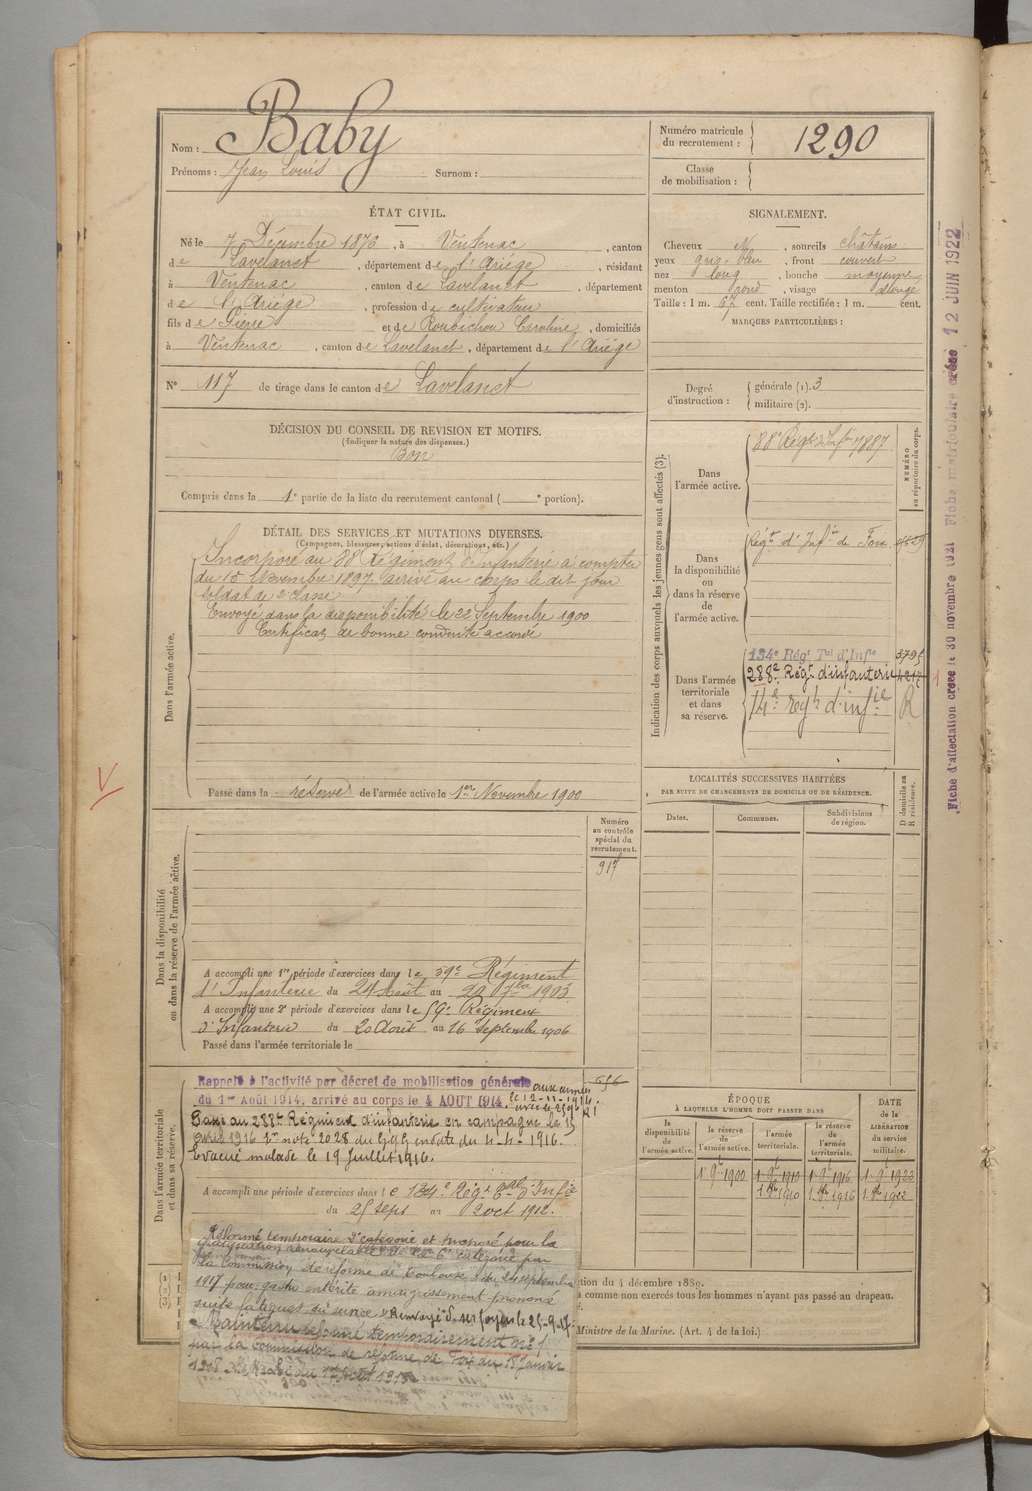 Nom : Baby
Prénoms : Jean Louis Surnom :
Numéro matricule du recrutement : 1290
Classe de mobilisation :
ÉTAT CIVIL.
Né le 7 Décembre 1876, à Ventenac, canton
de Lavelanet, département de l'Ariège, résidant
à Ventenac, canton de Lavelanet, département
de l'Ariège, profession de cultivateur
fils de Pierre et de Roubichou Caroline, domiciliés
à Ventenac, canton de Lavelanet, département de l'Ariège
N° 117 de tirage dans le canton de Lavelanet
SIGNALEMENT.
Cheveux N, sourcils châtains
yeux gris-bleu, front couvert
nez long, bouche moyenne
menton rond, visage allongé
Taille : 1 m. 67 cent. Taille rectifiée : 1 m. cent.
MARQUES PARTICULIÈRES :
Degré d'instruction : générale (1). 3
militaire (2).
DÉCISION DU CONSEIL DE REVISION ET MOTIFS.
(Indiquer la nature des dispenses.)
Bon
Compris dans la 1e partie de la liste du recrutement cantonal ( e portion).
DÉTAIL DES SERVICES ET MUTATIONS DIVERSES.
(Campagnes, blessures, actions d'éclat, décorations, etc.)
Dans l'armée active.
Incorporé au 88e Régiment d'infanterie à compter
du 15 Novembre 1897 arrivé au corps le dit jour
soldat de 2e classe
Envoyé dans la disponibilité le 22 Septembre 1900
Certificat de bonne conduite accordé
Passé dans la réserve de l'armée active le 1er Novembre 1900
Indication des corps auxquels les jeunes gens sont affectés (3).
NUMÉRO au répertoire du corps.
Dans l'armée active.
88e Régt d'Infie 7887
Dans la disponibilité ou dans la réserve de l'armée active.
Régt d'Infie de Foix
Dans l'armée territoriale et dans sa réserve.
134e Régt Tal d'Infie 3795
288e Régt d'infanterie 4217
14e régt d'infie R
LOCALITÉS SUCCESSIVES HABITÉES
PAR SUITE DE CHANGEMENTS DE DOMICILE OU DE RÉSIDENCE.
Dates. Communes. Subdivisions de région. D domicile ou R résidence.
Dans la disponibilité ou dans la réserve de l'armée active.
Numéro au contrôle spécial du recrutement.
917
A accompli une 1re période d'exercices dans le 59e Régiment
d'Infanterie du 24 Août au 20 7bre 1903
A accompli une 2e période d'exercices dans le 59e Régiment
d'Infanterie du 20 Août au 16 Septembre 1906
Passé dans l'armée territoriale le
Dans l'armée territoriale et dans sa réserve.
Rappelé à l'activité par décret de mobilisation générale
du 1er Août 1914, arrivé au corps le 4 AOUT 1914. aux armées
le 12-11-1914
656
Passé au 288e Régiment d'infanterie en campagne le 15
avril 1916 note 2028 du G.Q.G. en date du 4-4-1916.
Evacué malade le 19 Juillet 1916.
A accompli une période d'exercices dans le 134e Régt Tal d'Infie
du 25 sept au 2 oct 1912.
Réformé temporaire 2e catégorie et proposé pour la
gratification renouvelable de la 6e catégorie par
la Commission de réforme de Toulouse du 24 septembre
1917 pour: gastro entérite amaigrissement prononcé
suite fatigues du service Renvoyé d. ses foyers le 25-9-17
Maintenu réformé temporairement n° 1
par la Commission de réforme de Foix du 18 janvier
1918
ÉPOQUE
À LAQUELLE L'HOMME DOIT PASSER DANS
la disponibilité de l'armée active. la réserve de l'armée active. l'armée territoriale. la réserve de l'armée territoriale.
DATE de la LIBÉRATION du service militaire.
1er 9bre 1900 1er 9bre 1910 1er 9bre 1916 1er 9bre 1922
1er 8bre 1910 1er 8bre 1916 1er 8bre 1922
tion du 4 décembre 1889.
a comme non exercés tous les hommes n'ayant pas passé au drapeau.
Ministre de la Marine. (Art. 4 de la loi.)
Fiche d'affectation créée le 30 novembre 1921 Fiche matriculaire créée 12 JUIN 1922